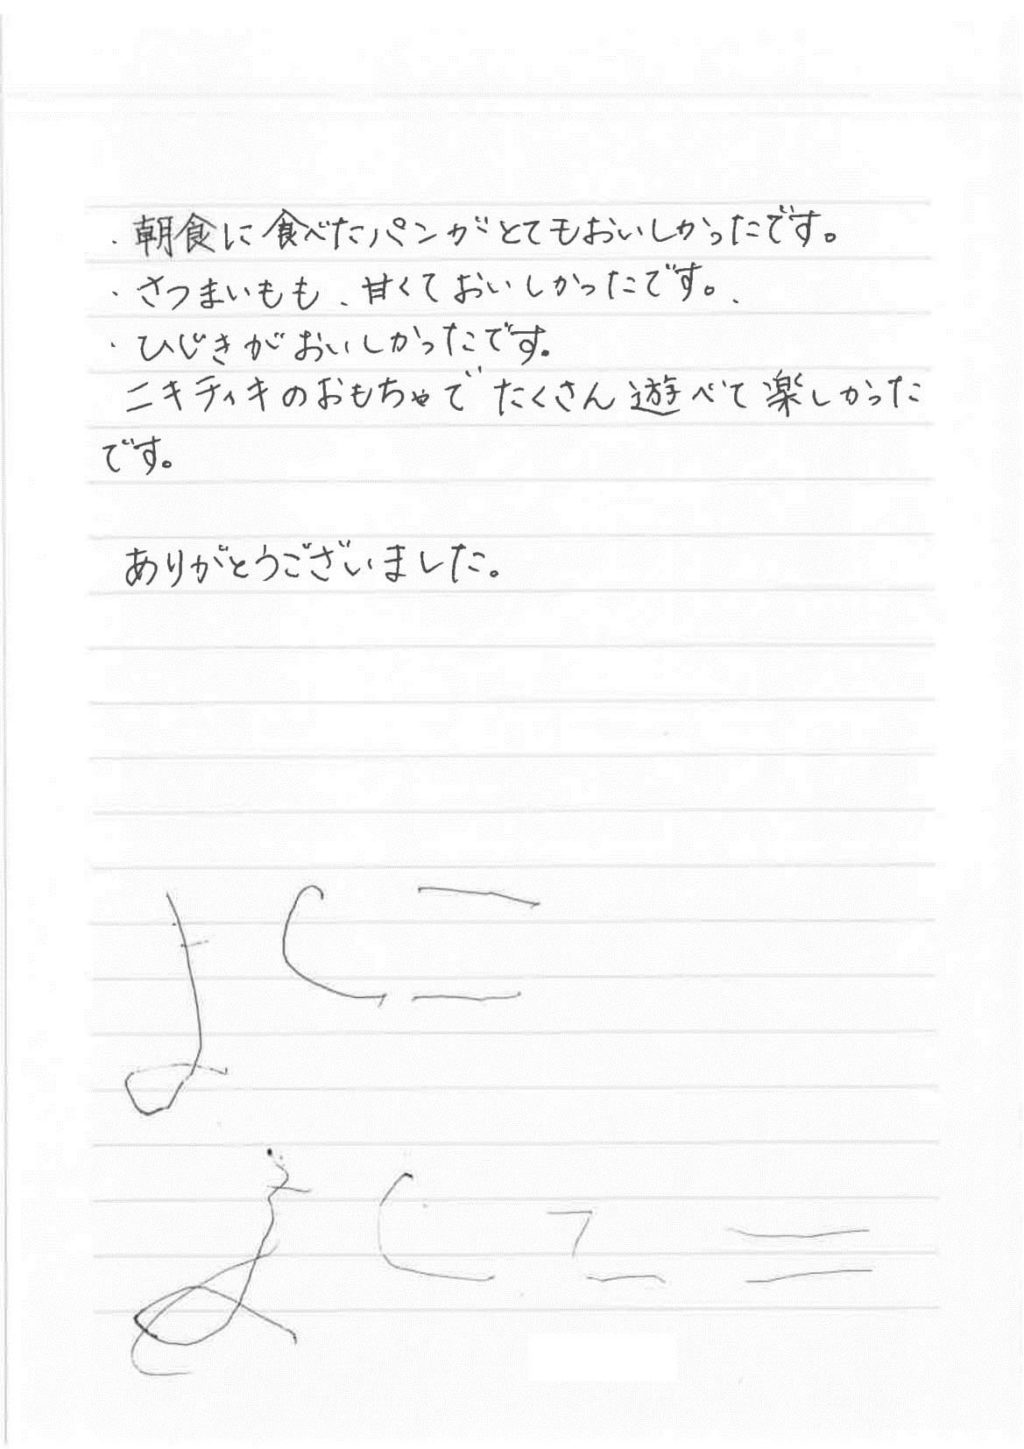 ・朝食に食べたパンがとてもおいしかったです。
・さつまいもも、甘くておいしかったです。、
・ひじきがおいしかったです。
ニキティキのおもちゃでたくさん遊べて楽しかった
です。
ありがとうございました。